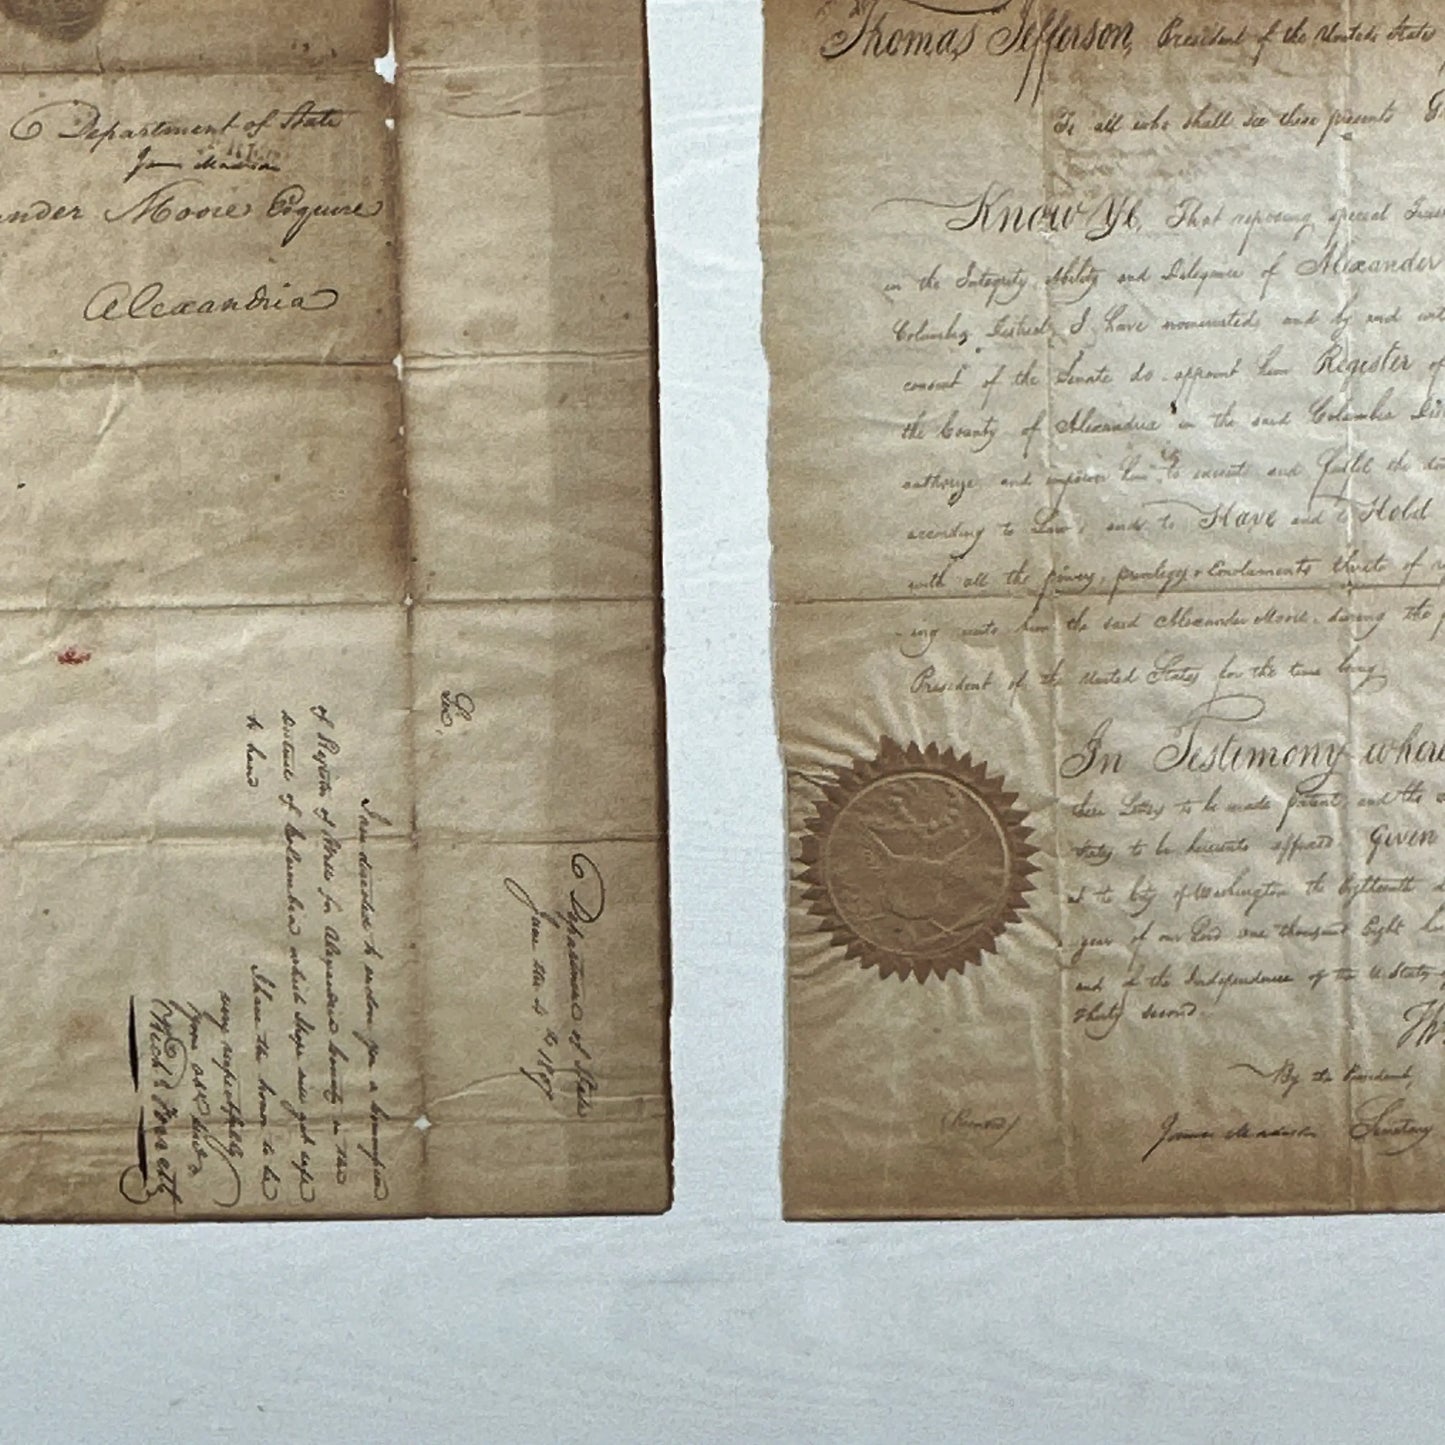 Department of State
James Madison
ander Moore Esquire
Alexandria
Department of State
June the 4th 1807
Sir,
I am directed to enclose you a Commission
of Register of Wills for Alexandria County in the
District of Columbia which I hope will get safe
to hand
I have the honor to be
very respectfully
Your obdt servt
Thomas Jefferson, President of the United States
To all who shall see these presents
Know Ye, That reposing special Trust
in the Integrity Ability and Diligence of Alexander
Columbia District, I have nominated and by and with
consent of the Senate do appoint him Register of
the County of Alexandria in the said Columbia Dis
authorize and empower him to execute and fulfil the du
according to Law, and to Have and to Hold
with all the powers, privileges & Emoluments thereto of r
ing unto him the said Alexander Moore, during the p
President of the United States for the time being
In Testimony where
these Letters to be made patent, and the
States to be hereunto affixed Given
at the City of Washington the Eighteenth
year of our Lord one thousand Eight hu
and of the Independence of the U. States of
Thirty second.
Th
By the President,
James Madison Secretary